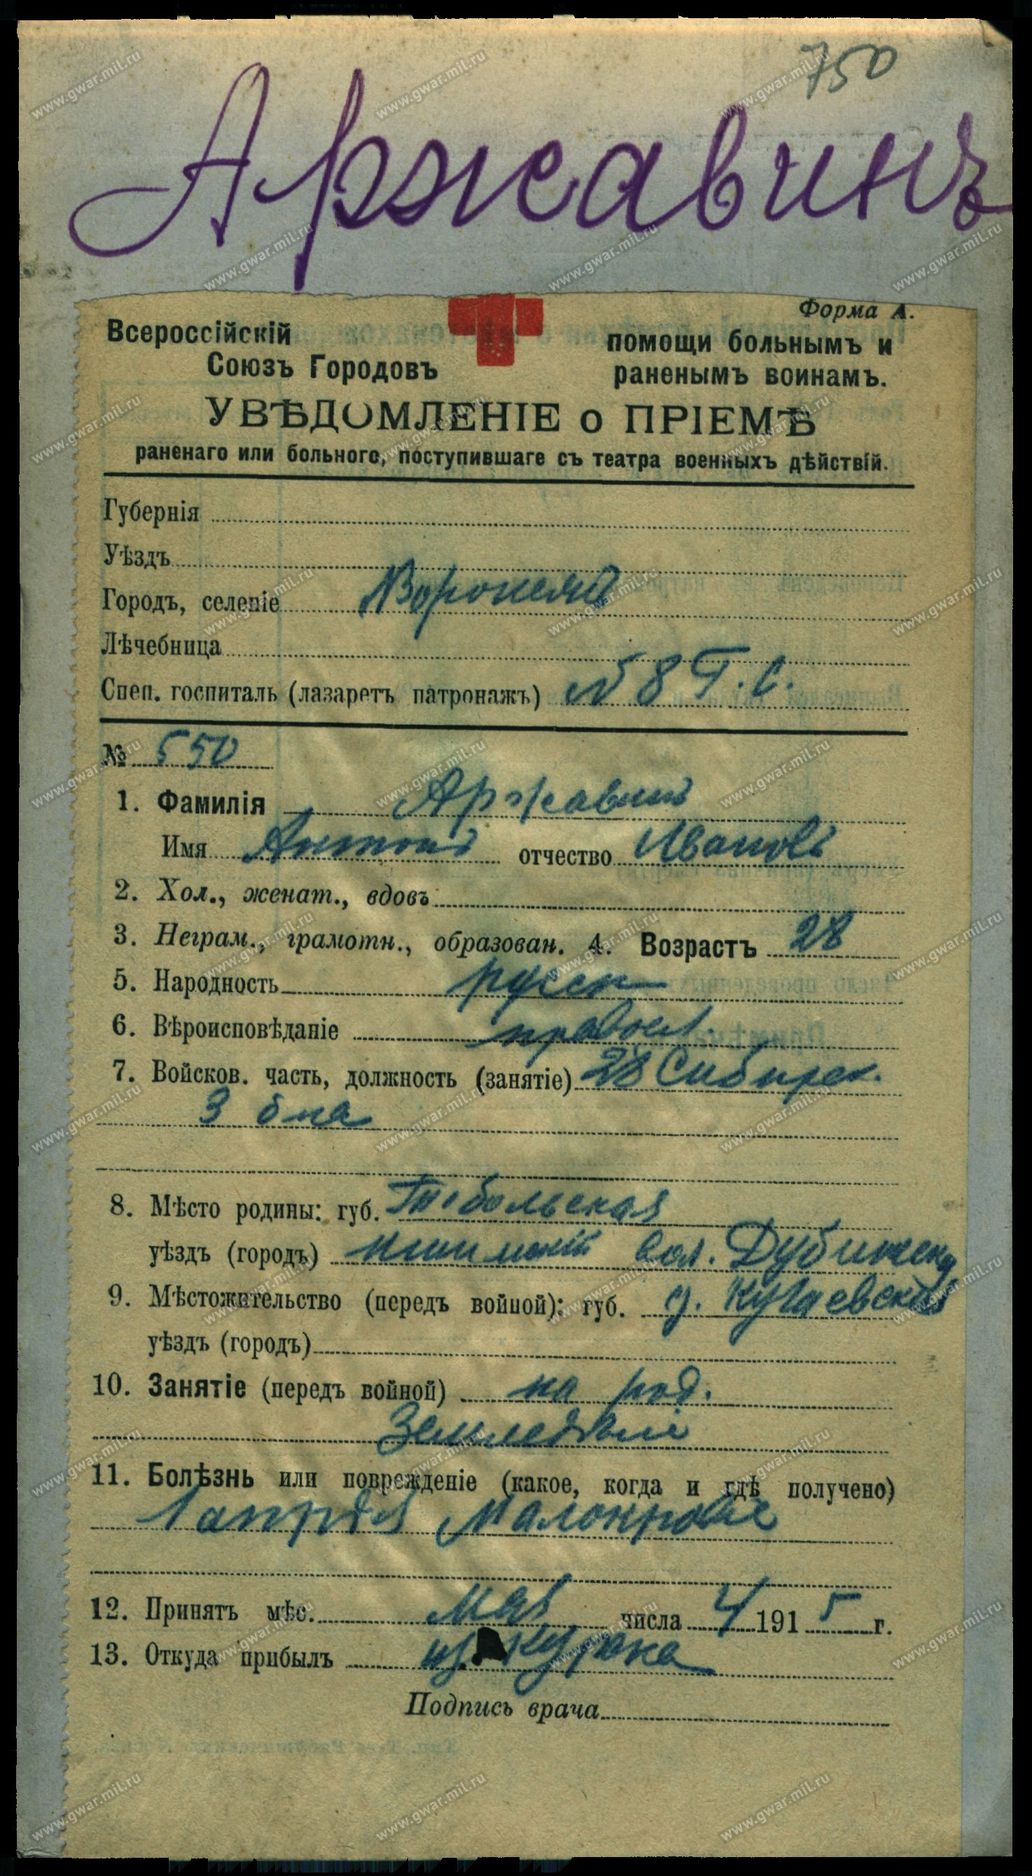 750
Аржавинъ
Форма А.
Всероссійскій
Союзъ Городовъ
помощи больнымъ и
раненымъ воинамъ.
УВѢДОМЛЕНІЕ о ПРІЕМѢ
раненаго или больного, поступившаго съ театра военныхъ дѣйствій.
Губернія
Уѣздъ
Городъ, селеніе Воронежъ
Лѣчебница
Спец. госпиталь (лазаретъ патронажъ) № 8 Г. С.
№ 550
1. Фамилія Аржавин
Имя Антон отчество Иванов
2. Хол., женат., вдовъ
3. Неграм., грамотн., образован. 4. Возрастъ 28
5. Народность русск
6. Вѣроисповѣданіе правосл.
7. Войсков. часть, должность (занятіе) 28 Сибирск.
3 б на
8. Мѣсто родины: губ. Тобольская
уѣздъ (городъ) Ишимский вол. Дубинск
9. Мѣстожительство (передъ войной): губ. д.
уѣздъ (городъ)
10. Занятіе (передъ войной) на род.
Земледѣліе
11. Болѣзнь или поврежденіе (какое, когда и гдѣ получено)
1 апрѣля Малокровіе
12. Принятъ мѣс. мая числа 4 1915 г.
13. Откуда прибылъ из
Подпись врача